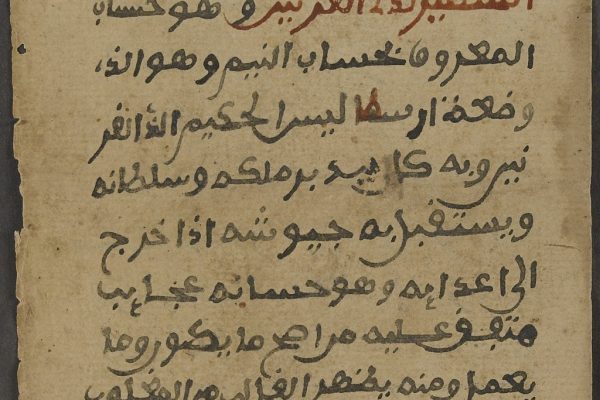 وهو حساب
المعروف بحساب النيم وهو الذى
وضعه ارسطاليس الحكيم الذى لذي القر
نين وبه كان يدبر ملكه وسلطانه
ويستقبل به جيوشه اذا خرج
الى اعدايه وهو حسابه عجايب
متفق عليه من اهم ما يكون وما
يعمل ومنه يظهر الغالب من المغلوب